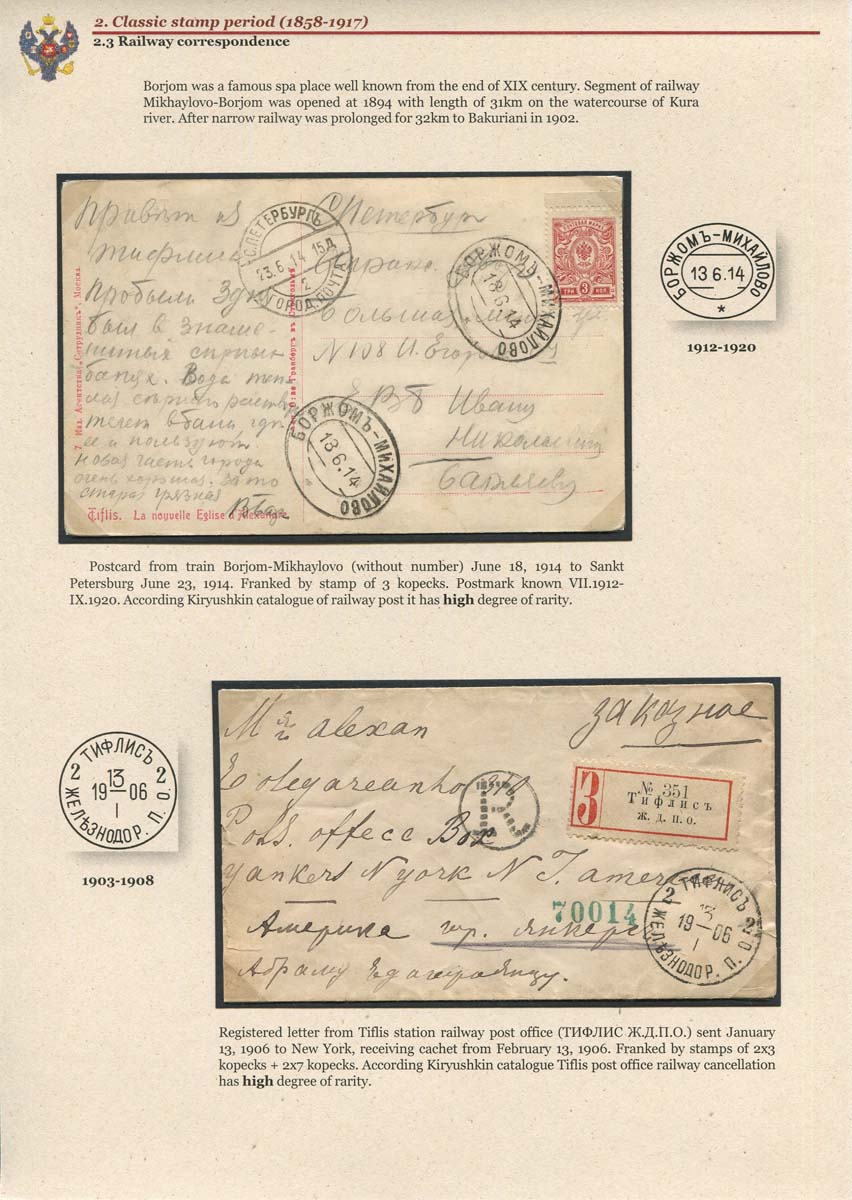 2. Classic stamp period (1858-1917)
2.3 Railway correspondence
Borjom was a famous spa place well known from the end of XIX century. Segment of railway
Mikhaylovo-Borjom was opened at 1894 with length of 31km on the watercourse of Kura
river. After narrow railway was prolonged for 32km to Bakuriani in 1902.
Привѣт из
Тифлиса
Пробыли
был в знаме-
нитых
банях. Вода теп-
лая
течет в бани, где
ею и пользуют.
новая часть города
очень хорошая. За то
старая грязная
Tiflis. La nouvelle Eglise d'Alexandre.
7. Изд. Агентства „Сотрудникъ“, Москва.
С.ПЕТЕРБУРГЪ
23.6.14 15Д
2
ГОРОД. ПОЧТА
С Петербург
Большая
N 108
ЕВБ Ивану
Николаевичу
ПОЧТОВАЯ МАРКА
ТРИ 3 КОП.
БОРЖОМЪ-МИХАЙЛОВО
18 6.14
БОРЖОМЪ-МИХАЙЛОВО
18 6.14
БОРЖОМЪ-МИХАЙЛОВО
13 6.14
*
1912-1920
Postcard from train Borjom-Mikhaylovo (without number) June 18, 1914 to Sankt
Petersburg June 23, 1914. Franked by stamp of 3 kopecks. Postmark known VII.1912-
IX.1920. According Kiryushkin catalogue of railway post it has high degree of rarity.
ТИФЛИСЪ
2 13 2
19 — 06
I
ЖЕЛѢЗНОДОР. П. О.
1903-1908
Заказное
Mr alexan
Post. offecc Box
Yankers N york N J. america
Америка гор. Янкерс
Абраму
R
3
№ 351
Тифлисъ
ж. д. п. о.
70014
ТИФЛИСЪ
2 13 2
19 — 06
I
ЖЕЛѢЗНОДОР. П. О.
Registered letter from Tiflis station railway post office (ТИФЛИС Ж.Д.П.О.) sent January
13, 1906 to New York, receiving cachet from February 13, 1906. Franked by stamps of 2x3
kopecks + 2x7 kopecks. According Kiryushkin catalogue Tiflis post office railway cancellation
has high degree of rarity.